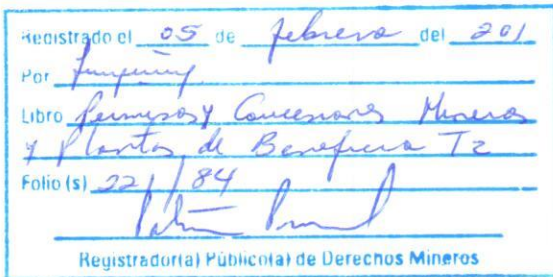 Registrado el 05 de febrero del 201
Por
Libro Permisos y Concesiones Mineras
y Plantas de Beneficio T2
Folio (s) 221/84
Registrador(a) Público(a) de Derechos Mineros